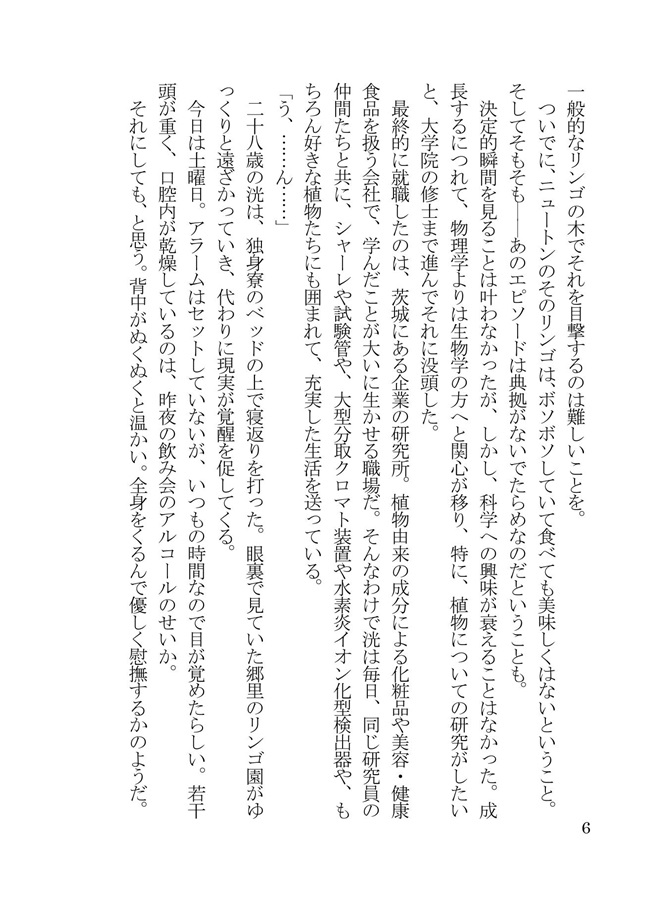 一般的なリンゴの木でそれを目撃するのは難しいことを。
ついでに、ニュートンのそのリンゴは、ボソボソしていて食べても美味しくはないということ。
そしてそもそも――あのエピソードは典拠がないでたらめなのだということも。
決定的瞬間を見ることは叶わなかったが、しかし、科学への興味が衰えることはなかった。成
長するにつれて、物理学よりは生物学の方へと関心が移り、特に、植物についての研究がしたい
と、大学院の修士まで進んでそれに没頭した。
最終的に就職したのは、茨城にある企業の研究所。植物由来の成分による化粧品や美容・健康
食品を扱う会社で、学んだことが大いに生かせる職場だ。そんなわけで洸は毎日、同じ研究員の
仲間たちと共に、シャーレや試験管や、大型分取クロマト装置や水素炎イオン化型検出器や、も
ちろん好きな植物たちにも囲まれて、充実した生活を送っている。
「う、……ん……」
二十八歳の洸は、独身寮のベッドの上で寝返りを打った。眼裏で見ていた郷里のリンゴ園がゆ
っくりと遠ざかっていき、代わりに現実が覚醒を促してくる。
今日は土曜日。アラームはセットしていないが、いつもの時間なので目が覚めたらしい。若干
頭が重く、口腔内が乾燥しているのは、昨夜の飲み会のアルコールのせいか。
それにしても、と思う。背中がぬくぬくと温かい。全身をくるんで優しく慰撫するかのようだ。
6